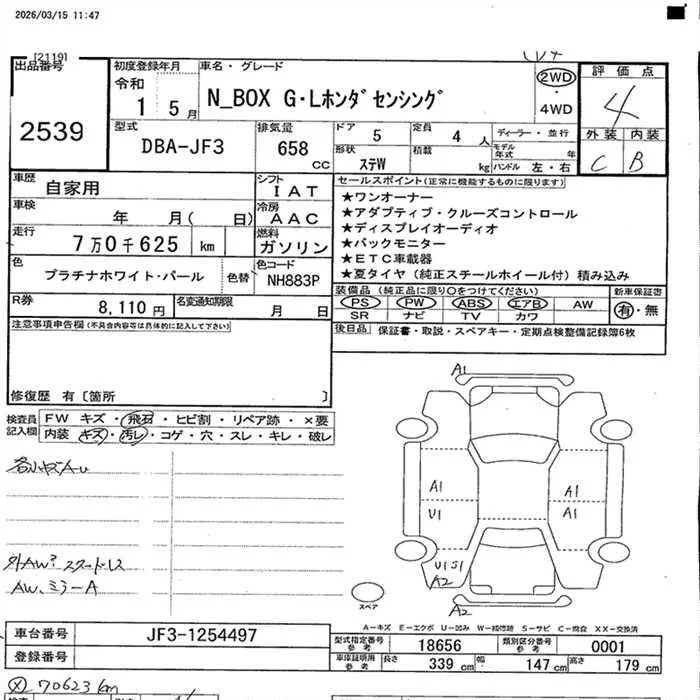 2026/03/15 11:47
[2119]
出品番号
2539
初度登録年月
令和
1 5月
車名・グレード
N_BOX G・Lホンダセンシング
2WD
4WD
評価点
4
外装 内装
C B
型式
DBA-JF3
排気量
658
CC
ドア 5
定員 4 人
ディーラー・並行
形状 ステW
積載 kg
モデル年式 年
ハンドル 左・右
車歴
自家用
シフト
IAT
車検
年 月( 日)
冷房
AAC
走行
7万0千625 km
燃料
ガソリン
色
プラチナホワイト・パール
色替
色コード
NH883P
R券
8,110円
名変通知期限
月 日
セールスポイント(正常に機能するものに限ります)
★ワンオーナー
★アダプティブ・クルーズコントロール
★ディスプレイオーディオ
★バックモニター
★ETC車載器
★夏タイヤ(純正スチールホイール付)積み込み
装備品(純正品に限り○をつけてください)
PS PW ABS エアB AW
SR ナビ TV カワ
新車保証書
有・無
後日品 保証書・取説・スペアキー・定期点検整備記録簿6枚
注意事項申告欄(不具合内容等は具体的に記入して下さい)
修復歴 有〔箇所 〕
検査員記入欄
FW キズ・飛石・ヒビ割・リペア跡・×要
内装 キズ・汚レ・コゲ・穴・スレ・キレ・破レ
外AW?スタートレス
AW、ミラーA
A1
A1
U1
A1
A1
U1 S1
A2
A2
スペア
A-キズ E-エクボ U-凹み W-補修跡 S-サビ C-腐食 XX-交換済
車台番号 JF3-1254497
登録番号
型式指定番号 参考 18656
類別区分番号 参考 0001
車体証明 参考 長さ 339 cm 幅 147 cm 高さ 179 cm
70623km